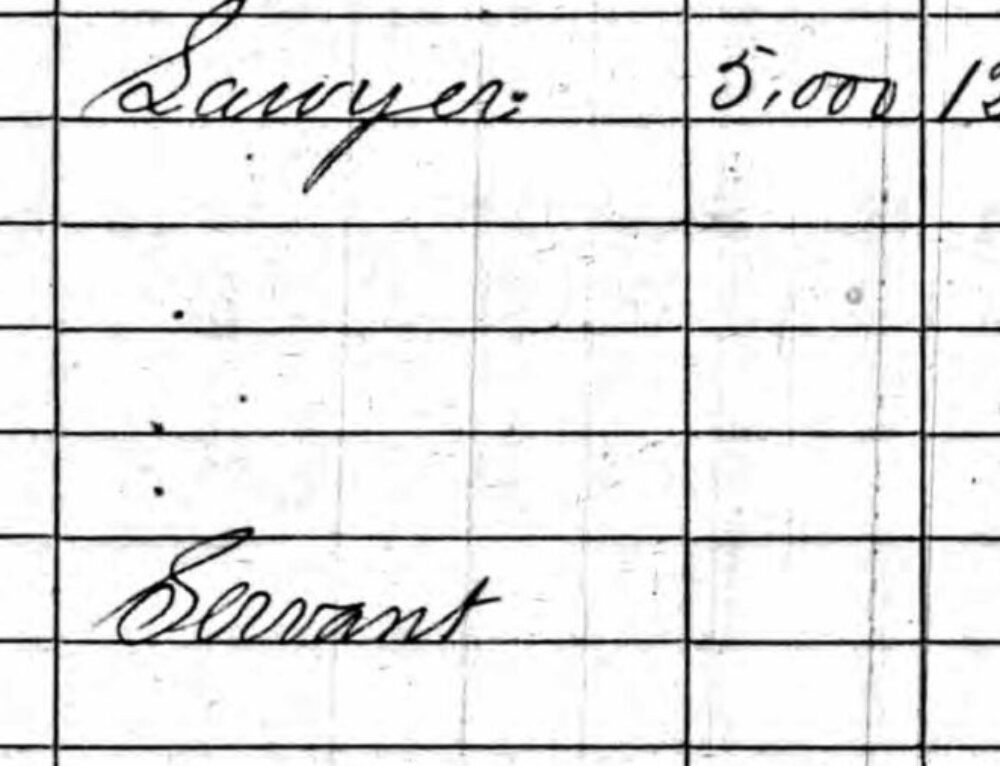 Lawyer. 5,000
Servant